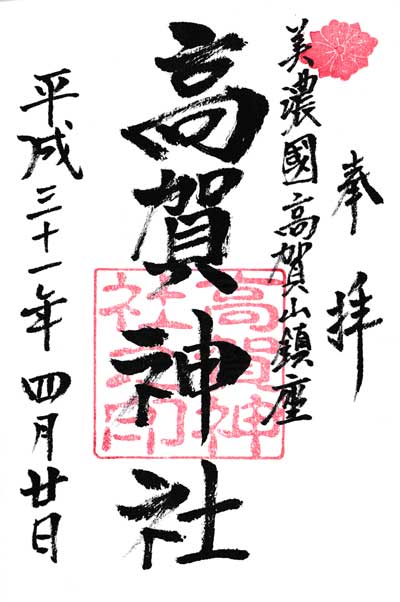 奉拝
美濃國高賀山鎮座
高賀神社
高賀神社之印
平成三十一年四月廿日